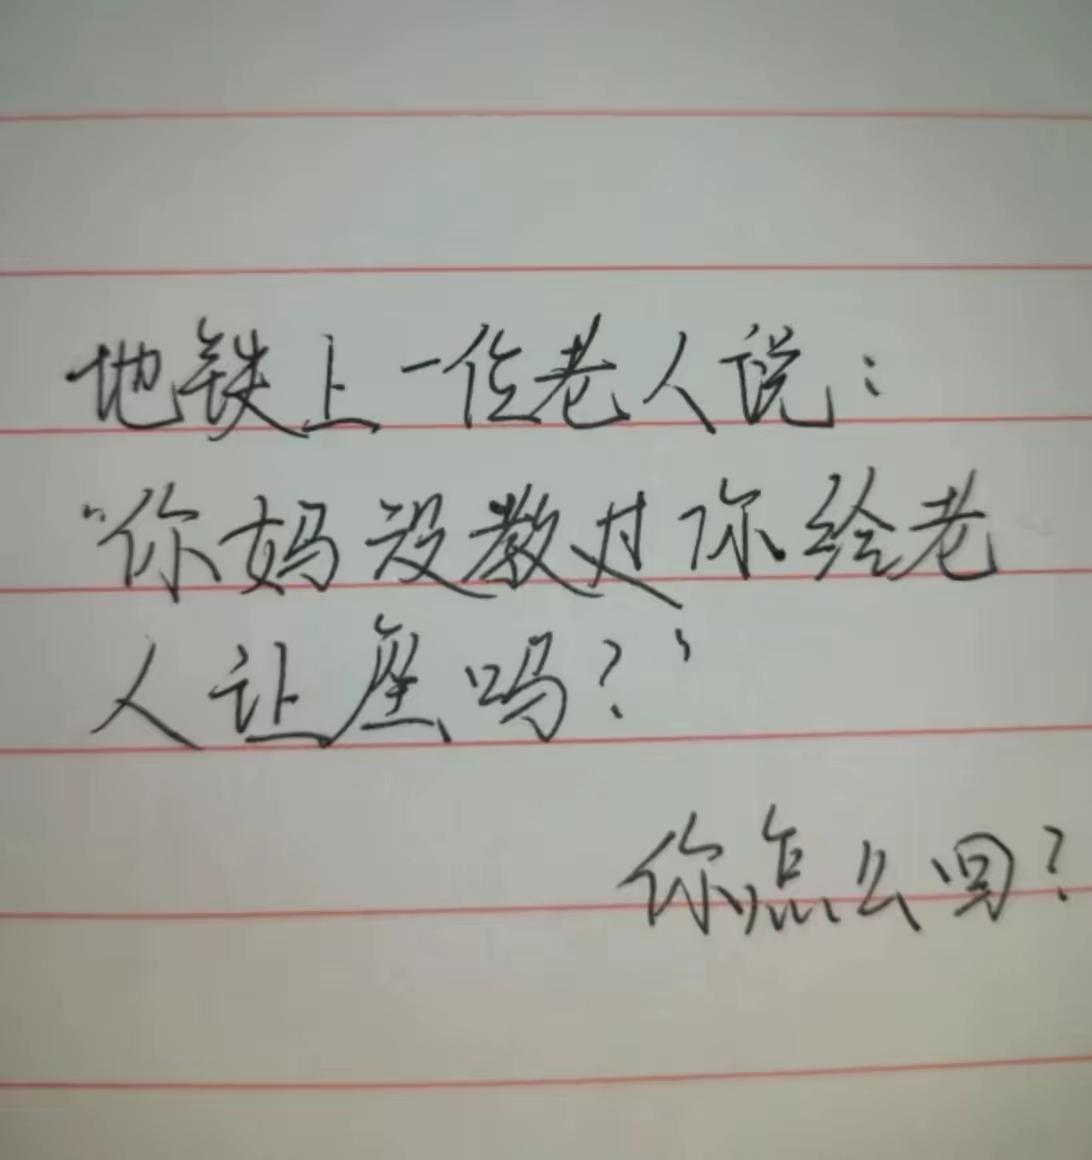 地铁上一位老人说：
“你妈没教过你给老
人让座吗？”
你怎么回？